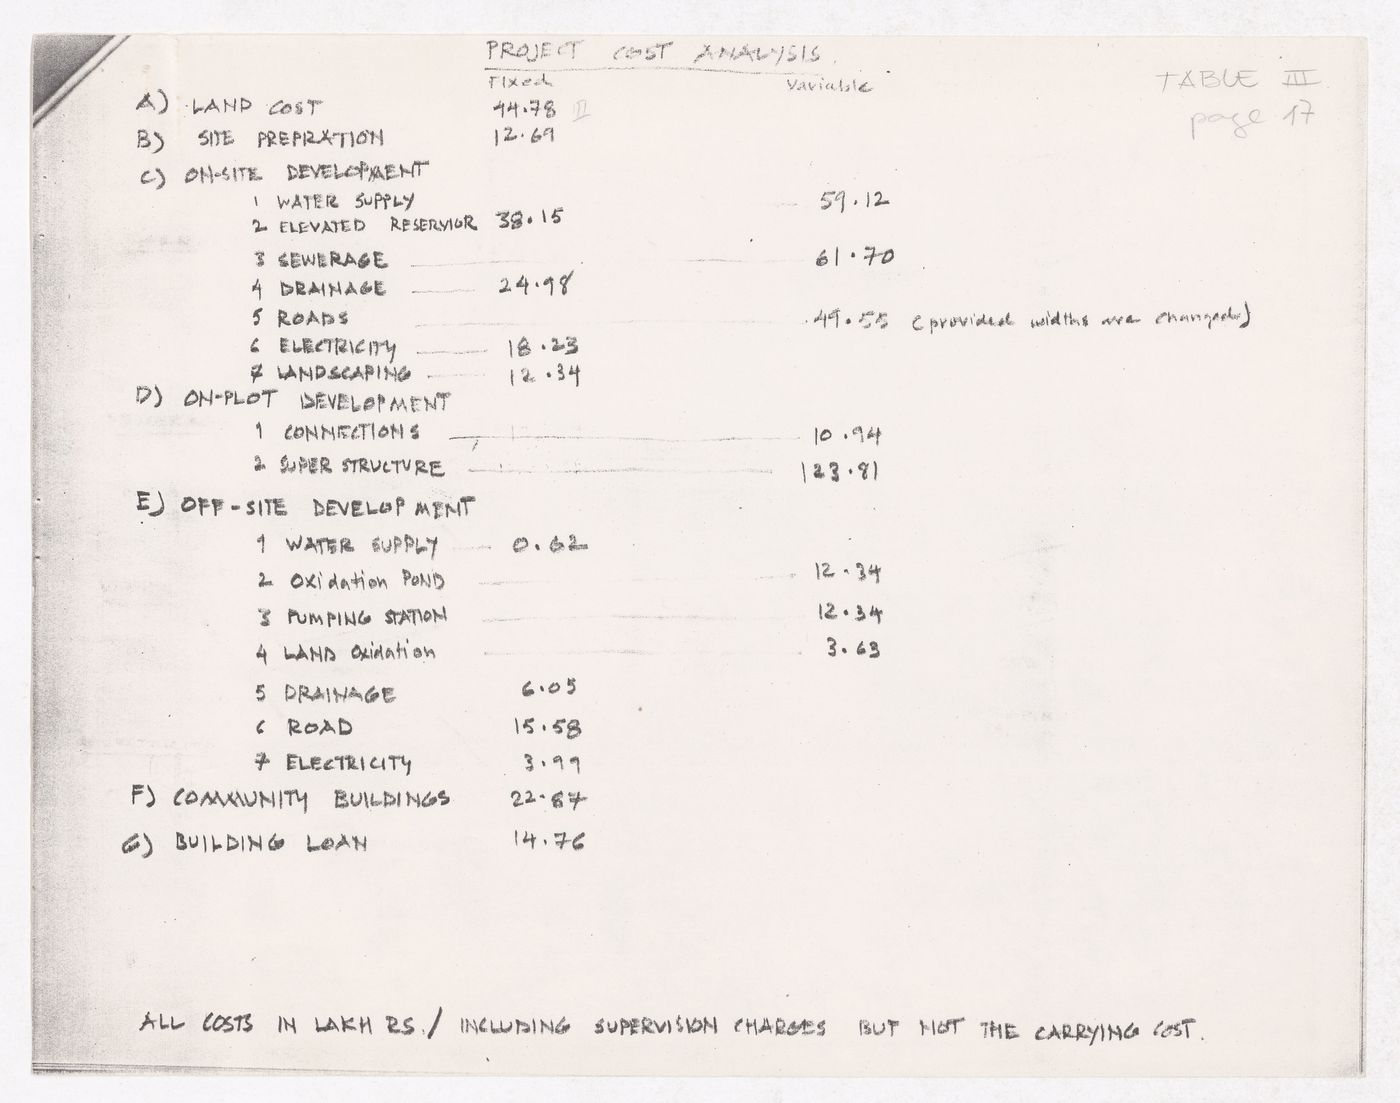 PROJECT COST ANALYSIS.
Fixed Variable TABLE III
page 17
A) LAND COST 44.78 II
B) SITE PREPRATION 12.69
C) ON-SITE DEVELOPMENT
1 WATER SUPPLY 59.12
2 ELEVATED RESERVIOR 38.15
3 SEWERAGE 61.70
4 DRAINAGE 24.98
5 ROADS 49.55 (provided widths are changed)
6 ELECTRICITY 18.23
7 LANDSCAPING 12.34
D) ON-PLOT DEVELOPMENT
1 CONNECTIONS 10.94
2 SUPER STRUCTURE 123.81
E) OFF-SITE DEVELOPMENT
1 WATER SUPPLY 0.62
2 Oxidation POND 12.34
3 PUMPING STATION 12.34
4 LAND Oxidation 3.63
5 DRAINAGE 6.05
6 ROAD 15.58
7 ELECTRICITY 3.99
F) COMMUNITY BUILDINGS 22.87
G) BUILDING LOAN 14.76
ALL COSTS IN LAKH RS./ INCLUDING SUPERVISION CHARGES BUT NOT THE CARRYING COST.